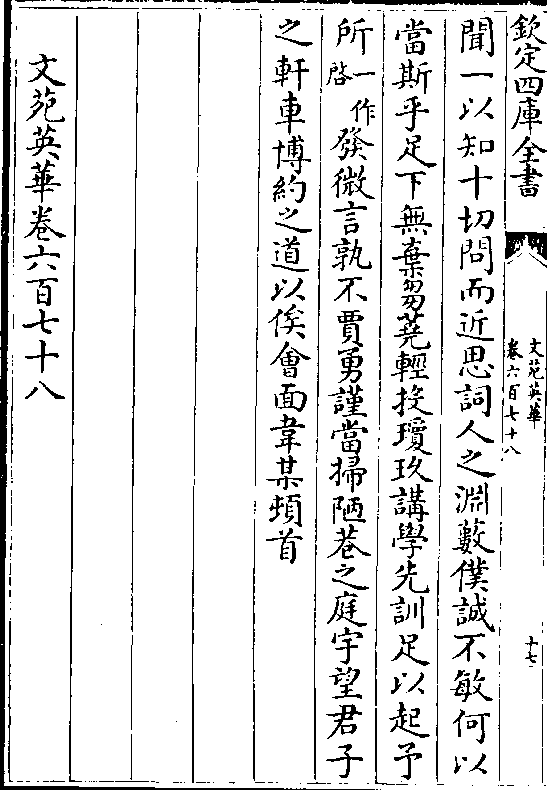 欽定四庫全書
文苑英華
卷六百七十八
十七
聞一以知十切問而近思詞人之淵藪僕誠不敏何以
當斯乎足下無棄芻蕘輕投瓊玖講學先訓足以起予
所一作啓發微言孰不賈勇謹當掃陋巷之庭宇望君子
之軒車博約之道以俟會面韋某頓首
文苑英華卷六百七十八